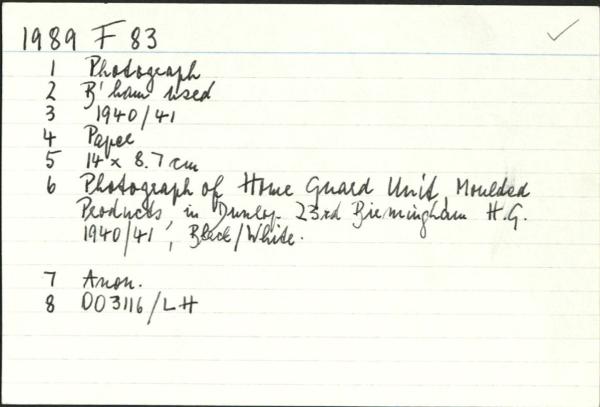 1989 F 83
1 Photograph
2 B'ham used
3 1940/41
4 Paper
5 14 x 8.7 cm
6 Photograph of Home Guard Unit, Moulded
Products, in Dunlop. 23rd Birmingham H.G.
1940/41, Black/White.
7 Anon.
8 DO3116/LH